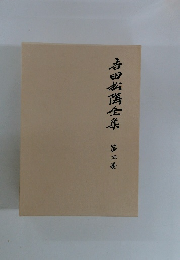 吉田松陰全集
第七巻